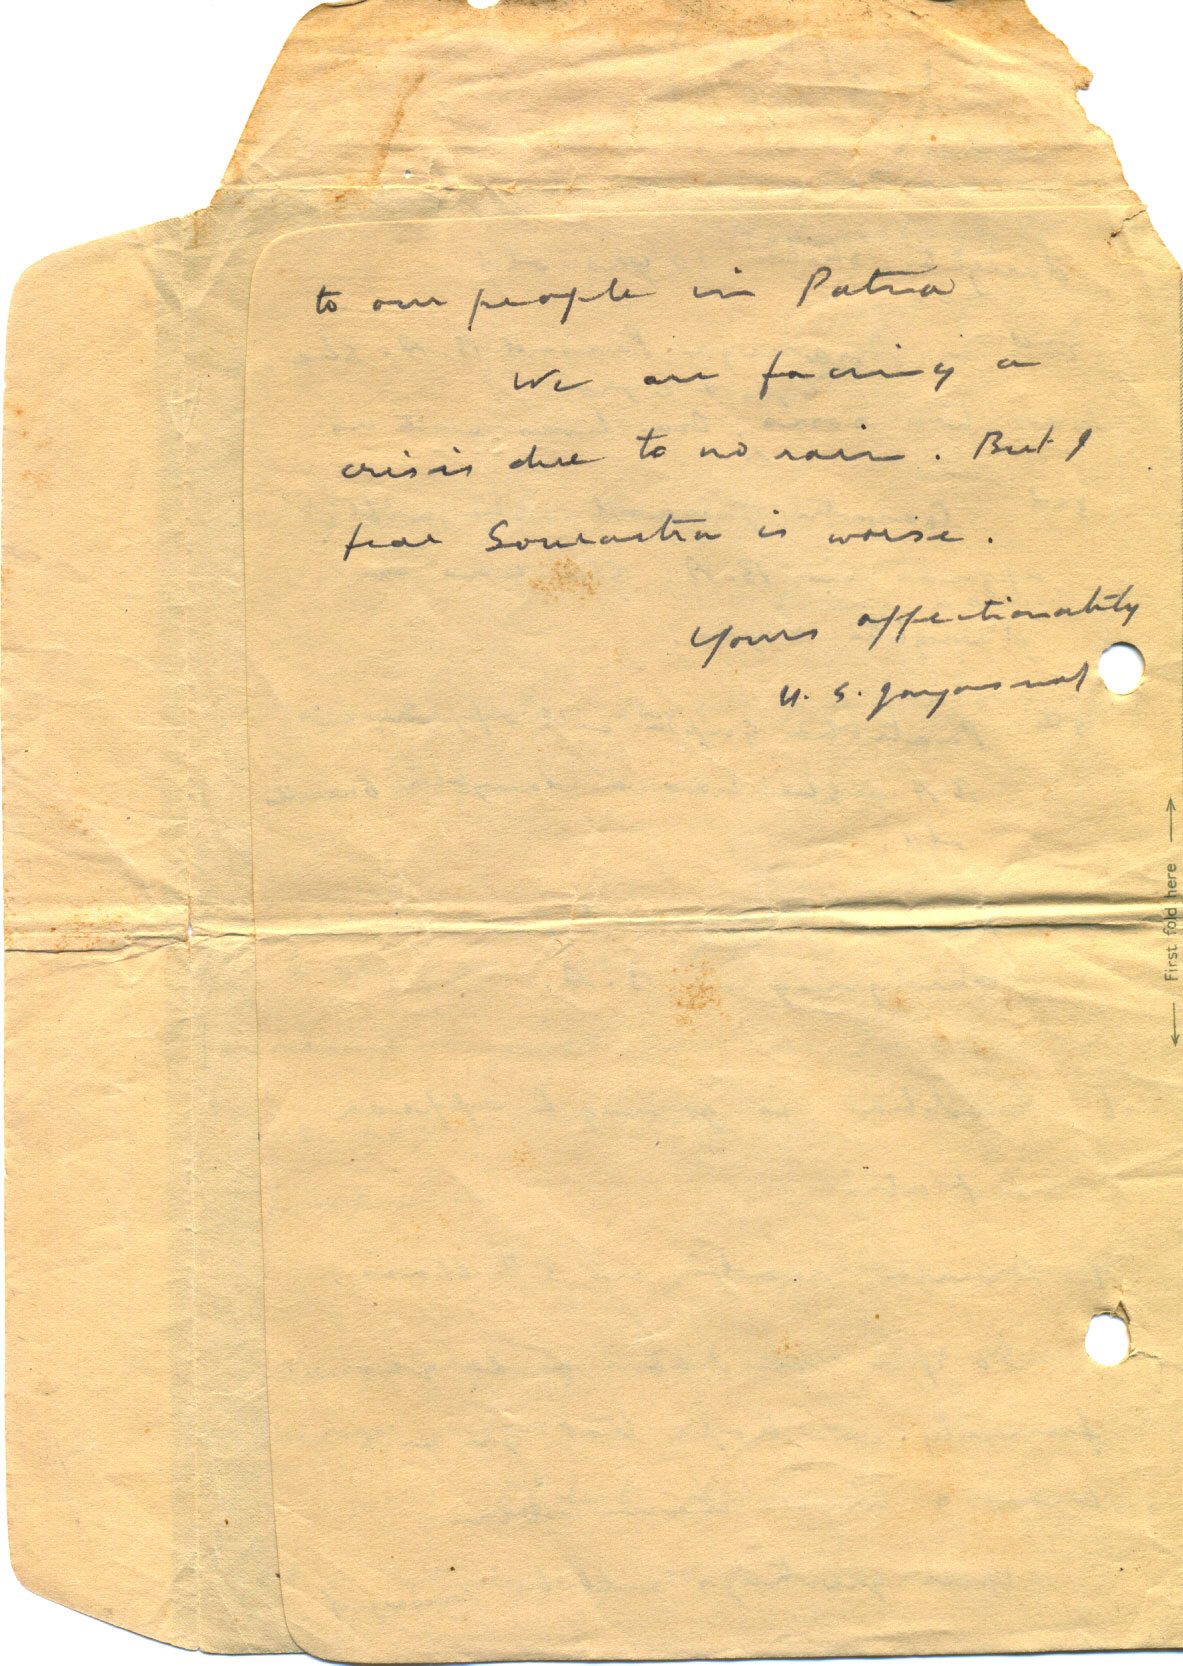 to our people in Patna
We are facing a
crisis due to no rain. But I
fear Sourastra is worse.
Yours affectionately
U. S.
First fold here